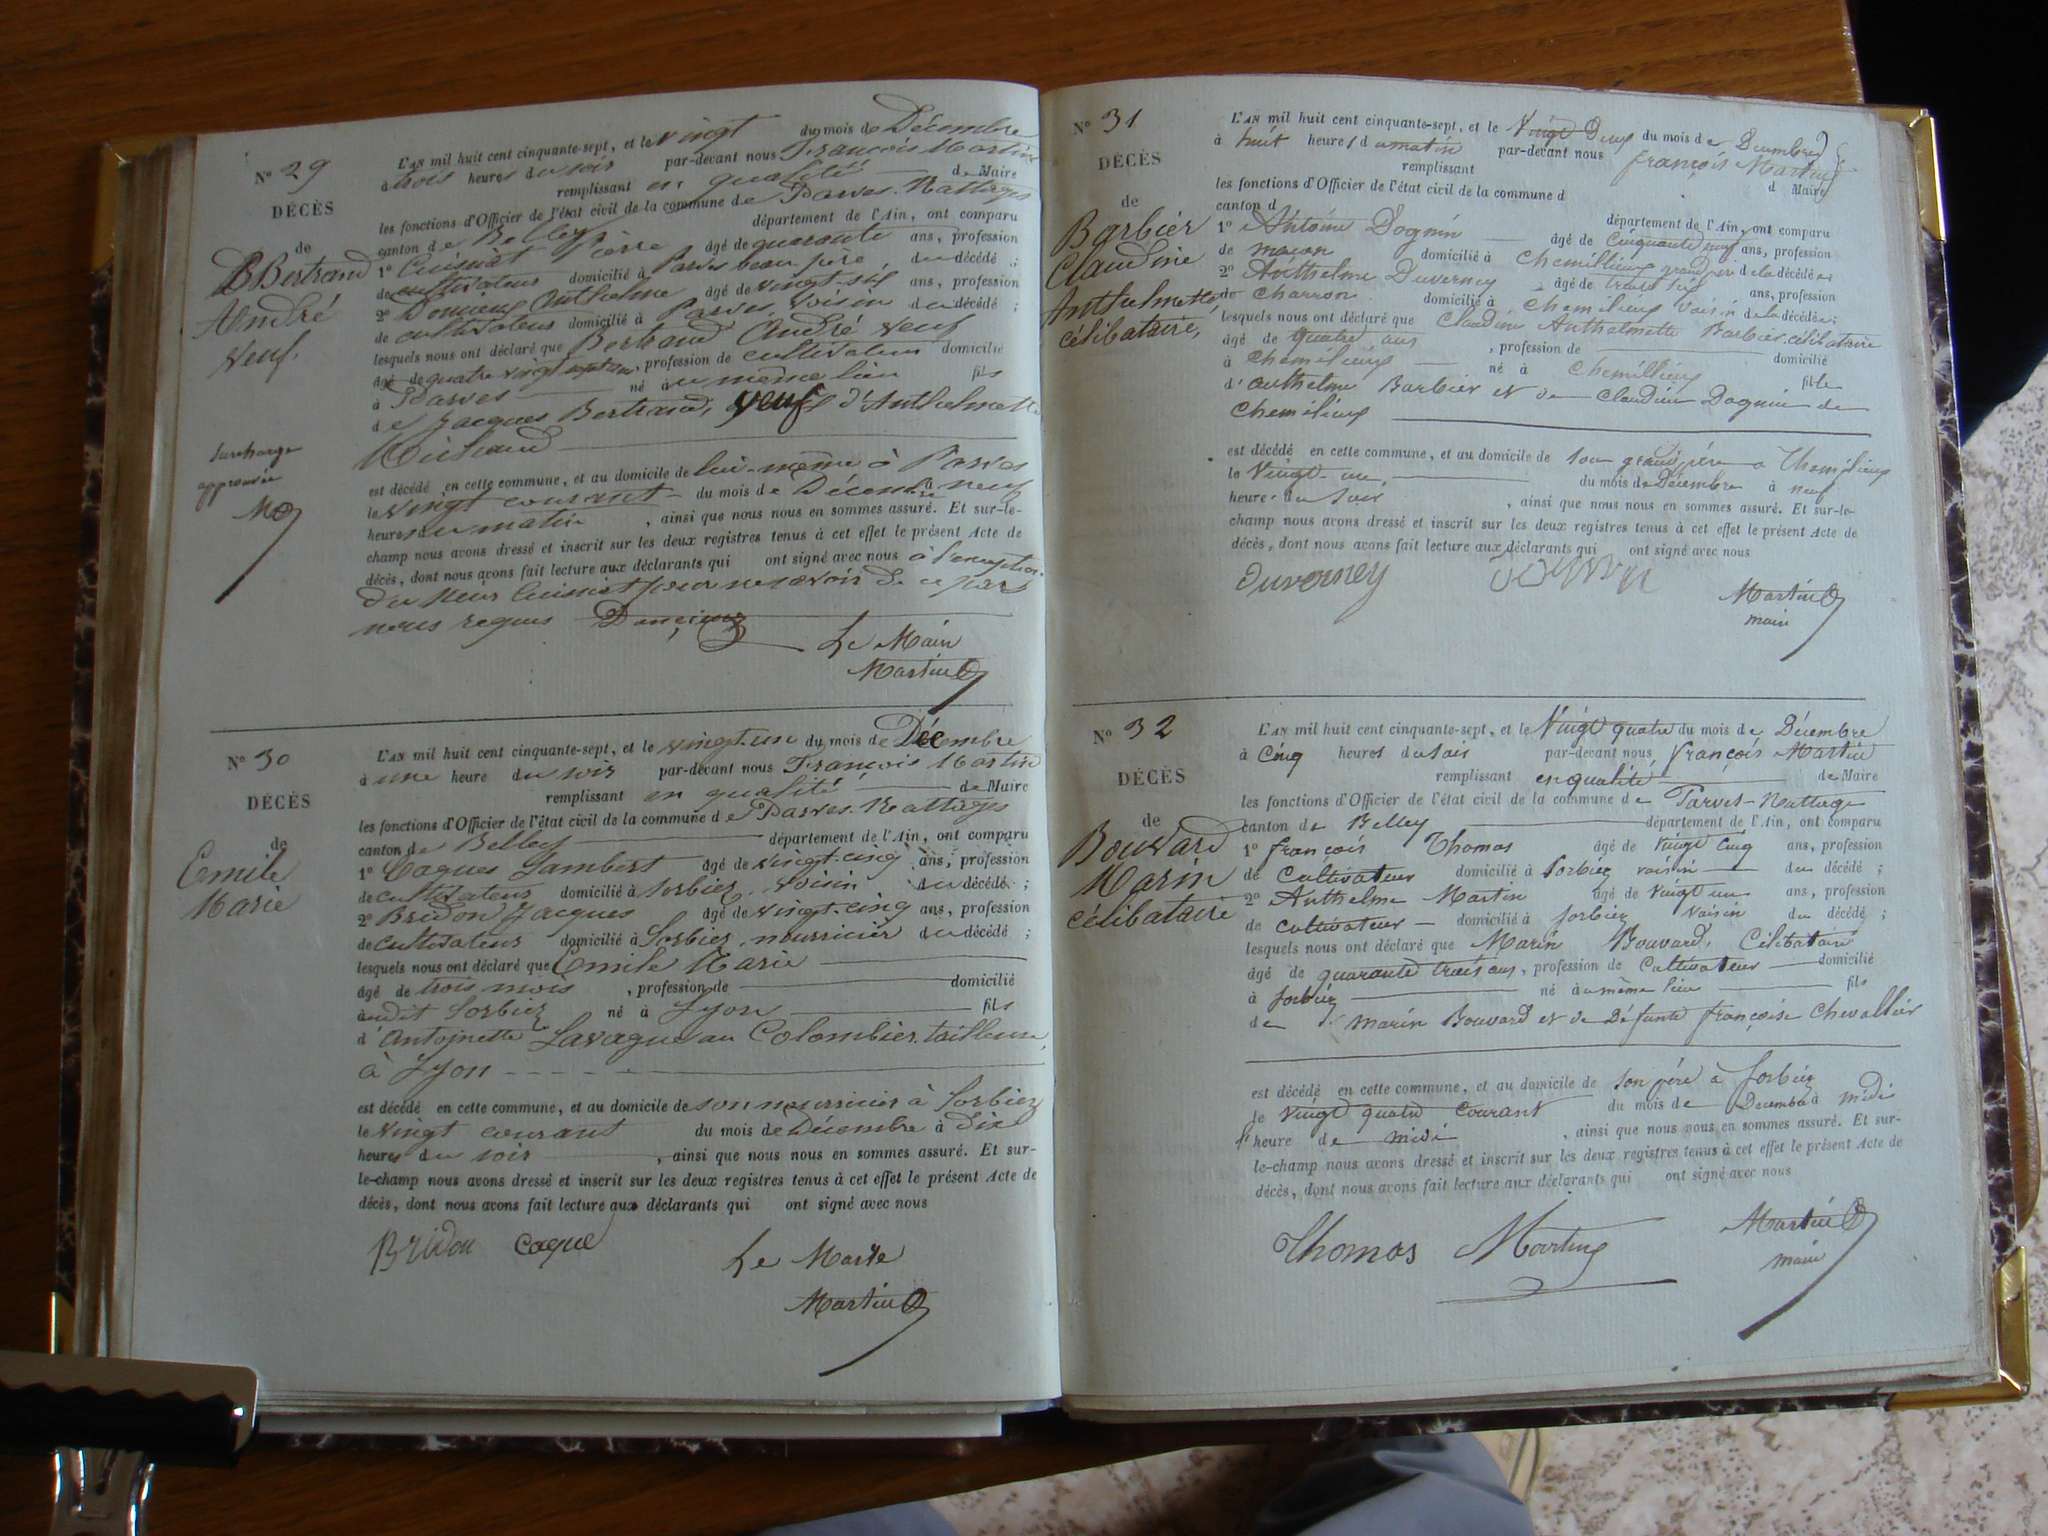 N° 29
DÉCÈS
de
Bertrand
André
Veuf.
surcharge
approuvée
L'AN mil huit cent cinquante-sept, et le vingt du mois de Décembre
à trois heures du soir par-devant nous François Martin
remplissant en qualité de Maire
les fonctions d'Officier de l'état civil de la commune de Parves-Nattages
canton de Belley département de l'Ain, ont comparu
1° Cuisinat Pierre âgé de quarante ans, profession
de cultivateur domicilié à Parves beau père, du décédé ;
2° Anthelme âgé de vingt-six ans, profession
de cultivateur domicilié à Parves, voisin du décédé ;
lesquels nous ont déclaré que Bertrand André veuf
âgé de quatre vingt , profession de cultivateur domicilié
à Parves né au même lieu fils
de Jacques Bertrand, veuf d'Anthelmette
Michaud
est décédé en cette commune, et au domicile de lui-même à Parves
le vingt courant du mois de Décembre à neuf
heures du matin , ainsi que nous nous en sommes assuré. Et sur-le-
champ nous avons dressé et inscrit sur les deux registres tenus à cet effet le présent Acte de
décès, dont nous avons fait lecture aux déclarants qui ont signé avec nous à l'exception
du sieur Cuisinat pour ne savoir de ce par
nous requis
Le Maire
Martin
N° 30
DÉCÈS
de
Emile
Marie
L'AN mil huit cent cinquante-sept, et le vingt-un du mois de Décembre
à une heure du soir par-devant nous François Martin
remplissant en qualité de Maire
les fonctions d'Officier de l'état civil de la commune de Parves-Nattages
canton de Belley département de l'Ain, ont comparu
1° Caques Lambert âgé de vingt-cinq ans, profession
de cultivateur domicilié à Sorbiez, voisin du décédé ;
2° Bridon Jacques âgé de vingt-cinq ans, profession
de cultivateur domicilié à Sorbiez, nourricier du décédé ;
lesquels nous ont déclaré que Emile Marie
âgé de trois mois , profession de domicilié
audit Sorbiez né à Lyon fils
d'Antoinette Lavague au Colombier, tailleuse,
à Lyon
est décédé en cette commune, et au domicile de son nourricier à Sorbiez
le vingt courant du mois de Décembre à dix
heures du soir , ainsi que nous nous en sommes assuré. Et sur-
le-champ nous avons dressé et inscrit sur les deux registres tenus à cet effet le présent Acte de
décès, dont nous avons fait lecture aux déclarants qui ont signé avec nous
Bridon Caque
Le Maire
Martin
N° 31
DÉCÈS
de
Barbier
Claudine
Anthelmette,
célibataire,
L'AN mil huit cent cinquante-sept, et le Vingt Deux du mois de Décembre
à huit heures du matin par-devant nous François Martin
remplissant d Maire
les fonctions d'Officier de l'état civil de la commune d
canton d département de l'Ain, ont comparu
1° Antoine Dognin âgé de cinquante neuf ans, profession
de maçon domicilié à Chemillieux grand père de la décédée
2° Anthelme Duverney âgé de trente six ans, profession
de charron domicilié à Chemillieux voisin de la décédée ;
lesquels nous ont déclaré que Claudine Anthelmette Barbier célibataire
âgé de quatre ans , profession de domicilié
à Chemillieux né à Chemillieux fille
d'Anthelme Barbier et de Claudine Dognin de
Chemillieux
est décédé en cette commune, et au domicile de son grand père à Chemillieux
le Vingt-un, du mois de Décembre à neuf
heures du soir , ainsi que nous nous en sommes assuré. Et sur-le-
champ nous avons dressé et inscrit sur les deux registres tenus à cet effet le présent Acte de
décès, dont nous avons fait lecture aux déclarants qui ont signé avec nous
Duverney
Martin
maire
N° 32
DÉCÈS
de
Bouvard
Marin
célibataire
L'AN mil huit cent cinquante-sept, et le Vingt quatre du mois de Décembre
à cinq heures du soir par-devant nous François Martin
remplissant en qualité de Maire
les fonctions d'Officier de l'état civil de la commune de Parves-Nattage
canton de Belley département de l'Ain, ont comparu
1° François Thomas âgé de vingt cinq ans, profession
de cultivateur domicilié à Sorbiez voisin du décédé ;
2° Anthelme Martin âgé de vingt un ans, profession
de cultivateur domicilié à Sorbiez voisin du décédé ;
lesquels nous ont déclaré que Marin Bouvard, Célibataire
âgé de quarante trois ans, profession de cultivateur domicilié
à Sorbiez né au même lieu fils
de Marin Bouvard et de Défunte Françoise Chevallier
est décédé en cette commune, et au domicile de son père à Sorbiez
le vingt quatre courant du mois de Décembre à midi
heure de midi , ainsi que nous nous en sommes assuré. Et sur-
le-champ nous avons dressé et inscrit sur les deux registres tenus à cet effet le présent Acte de
décès, dont nous avons fait lecture aux déclarants qui ont signé avec nous
Thomas Martin Martin
maire